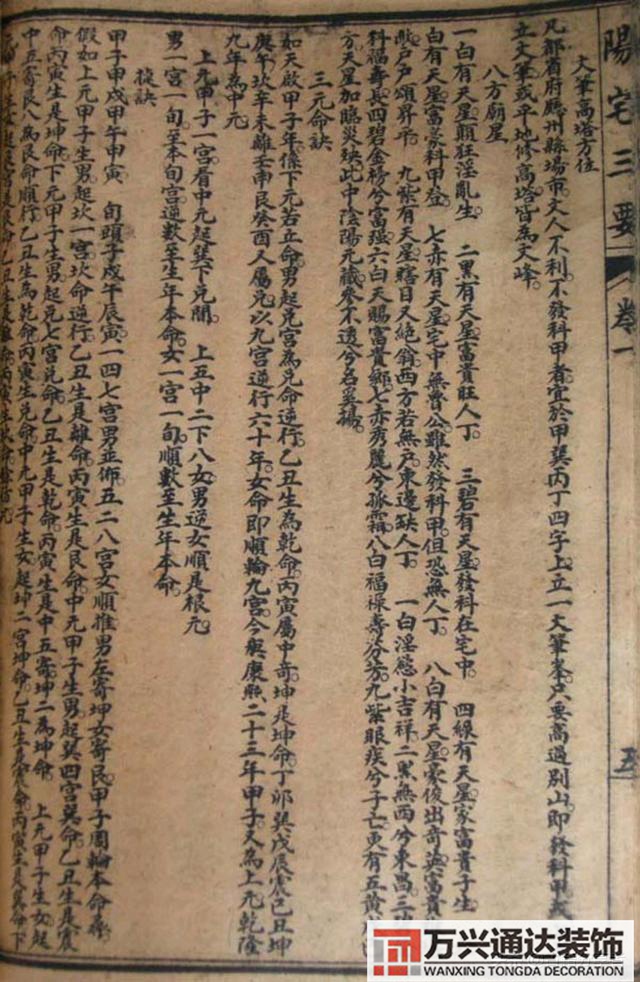 陽宅三要　卷一　五
文筆高塔方位
凡都省府廳州縣場市文人不利不發科甲者宜於甲巽丙丁四字上立一文筆峯只要高過別山即發科甲或
立文筆或平地修高塔皆為文峰
八方廟星
一白有天星顛狂淫亂生　二黑有天星富貴旺人丁　三碧有天星發科在宅中　四綠有天星家富貴子生
白有天星富豪科甲登　七赤有天星宅中無貴公雖然發科甲但恐無人丁　八白有天星豪俊出奇
戶戶頌昇平　九紫有天星瞎目又絕翁西方若無戶東邊缺人丁　一白淫慾小吉祥二黑無西兮東昌三
科福壽長四碧金榜兮富强六白天賜富貴鄉七赤秀麗兮孤霜八白福祿壽分芳九紫眼疾兮子亡更有五黃
方天星加臨災殃此中陰陽元藏參不透兮名莫揚
三元命訣
如天啟甲子年係下元若立命男起兌宮為兌命逆行乙丑生為乾命丙寅屬中寄坤是坤命丁卯巽戊辰震己丑坤
庚午坎辛未離壬申艮癸酉又屬兌以九宮逆行六十年女命即順輪九宮今與康熙二十三年甲子又為上元乾隆
九年為中元
上元甲子一宮看中元起巽下兌間　上五中二下八女男逆女順是根元
男一宮一旬至本旬宮逆數至生年本命女一宮一旬順數至生年本命
捷訣
甲子甲戌甲午甲寅　旬頭子戌午辰寅一四七宮男並佈五二八宮女順推男左寄坤女寄艮甲子圓輪本命尋
假如上元甲子生男起坎一宮坎命逆行乙丑生是離命丙寅生是艮命中元甲子生男起巽四宮巽命乙丑生是震
命丙寅生是坤命下元甲子生男起兌七宮兌命乙丑生是乾命丙寅生是中五寄坤二為坤命　上元甲子生女起
中五寄艮八為艮命順行乙丑生為乾命丙寅生兌命中元甲子生女起坤二宮坤命乙丑生是震命丙寅生是巽命下
万兴通达装饰
WANXING TONGDA DECORATION